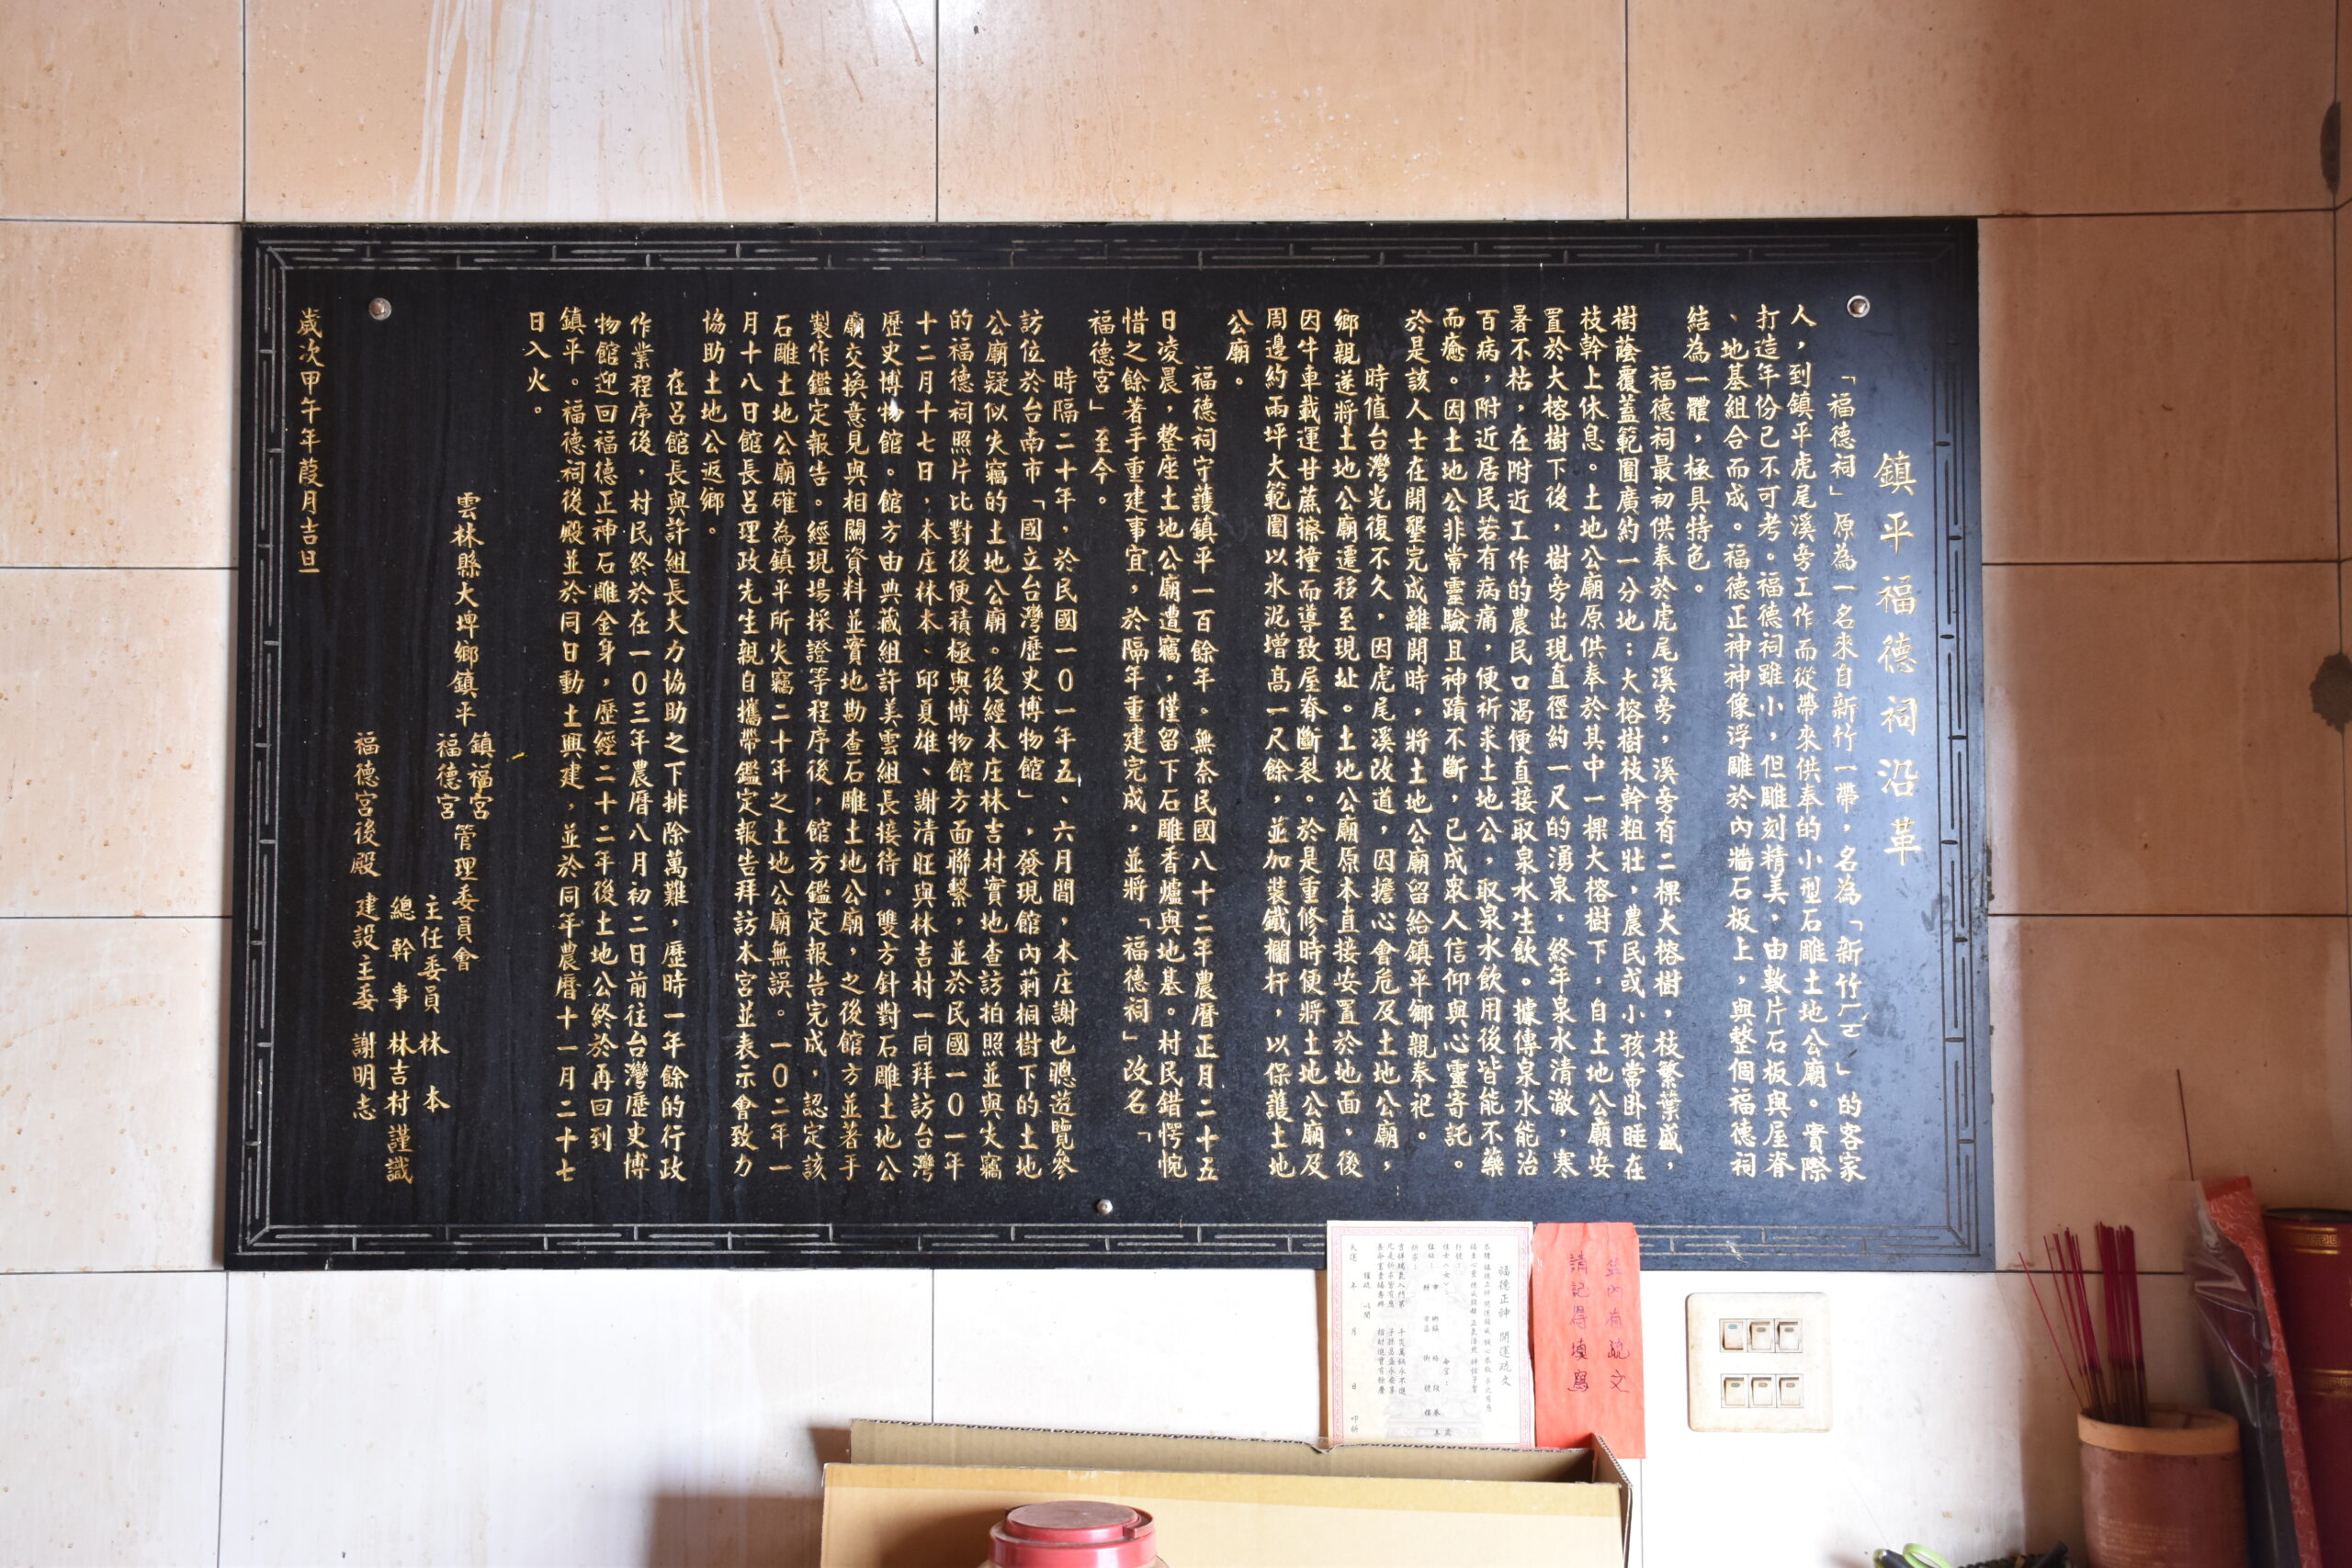 鎮平福德祠沿革
「福德祠」原為一名來自新竹一帶，名為「新竹ㄏㄛˊ」的客家
人，到鎮平虎尾溪旁工作而從帶來供奉的小型石雕土地公廟。實際
打造年份已不可考。福德祠雖小，但雕刻精美，由數片石板與屋脊
、地基組合而成。福德正神神像浮雕於內牆石板上，與整個福德祠
結為一體，極具特色。
福德祠最初供奉於虎尾溪旁，溪旁有二棵大榕樹，枝繁葉盛，
樹蔭覆蓋範圍廣約一分地；大榕樹枝幹粗壯，農民或小孩常卧睡在
枝幹上休息。土地公廟原供奉於其中一棵大榕樹下，自土地公廟安
置於大榕樹下後，樹旁出現直徑約一尺的湧泉，終年泉水清澈，寒
暑不枯，在附近工作的農民口渴便直接取泉水生飲。據傳泉水能治
百病，附近居民若有病痛，便祈求土地公，取泉水飲用後皆能不藥
而癒。因土地公非常靈驗且神蹟不斷，已成眾人信仰與心靈寄託。
於是該人士在開墾完成離開時，將土地公廟留給鎮平鄉親奉祀。
時值台灣光復不久，因虎尾溪改道，因擔心會危及土地公廟，
鄉親遂將土地公廟遷移至現址。土地公廟原本直接安置於地面，後
因牛車載運甘蔗擦撞而導致屋脊斷裂。於是重修時便將土地公廟及
周邊約兩坪大範圍以水泥增高一尺餘，並加裝鐵欄杆，以保護土地
公廟。
福德祠守護鎮平一百餘年。無奈民國八十二年農曆正月二十五
日凌晨，整座土地公廟遭竊，僅留下石雕香爐與地基。村民錯愕惋
惜之餘著手重建事宜，於隔年重建完成，並將「福德祠」改名「
福德宮」至今。
時隔二十年，於民國一０一年五、六月間，本庄謝也聰遊覽參
訪位於台南市「國立台灣歷史博物館」，發現館內莿桐樹下的土地
公廟疑似失竊的土地公廟。後經本庄林吉村實地查訪拍照並與失竊
的福德祠照片比對後便積極與博物館方面聯繫，並於民國一０一年
十二月十七日，本庄林本、邱夏雄、謝清旺與林吉村一同拜訪台灣
歷史博物館。館方由典藏組許美雲組長接待，雙方針對石雕土地公
廟交換意見與相關資料並實地勘查石雕土地公廟，之後館方並著手
製作鑑定報告。經現場採證等程序後，館方鑑定報告完成，認定該
石雕土地公廟確為鎮平所失竊二十年之土地公廟無誤。一０二年一
月十八日館長呂理政先生親自攜帶鑑定報告拜訪本宮並表示會致力
協助土地公返鄉。
在呂館長與許組長大力協助之下排除萬難，歷時一年餘的行政
作業程序後，村民終於在一０三年農曆八月初二日前往台灣歷史博
物館迎回福德正神石雕金身，歷經二十二年後土地公終於再回到
鎮平。福德祠後殿並於同日動土興建，並於同年農曆十一月二十七
日入火。
雲林縣大埤鄉鎮平
鎮福宮
福德宮
管理委員會
主任委員 林 本
總幹事 林吉村 謹識
福德宮後殿 建設主委 謝明志
歲次甲午年葭月吉旦
福德正神 開運疏文
並內有疏文
請記得填寫